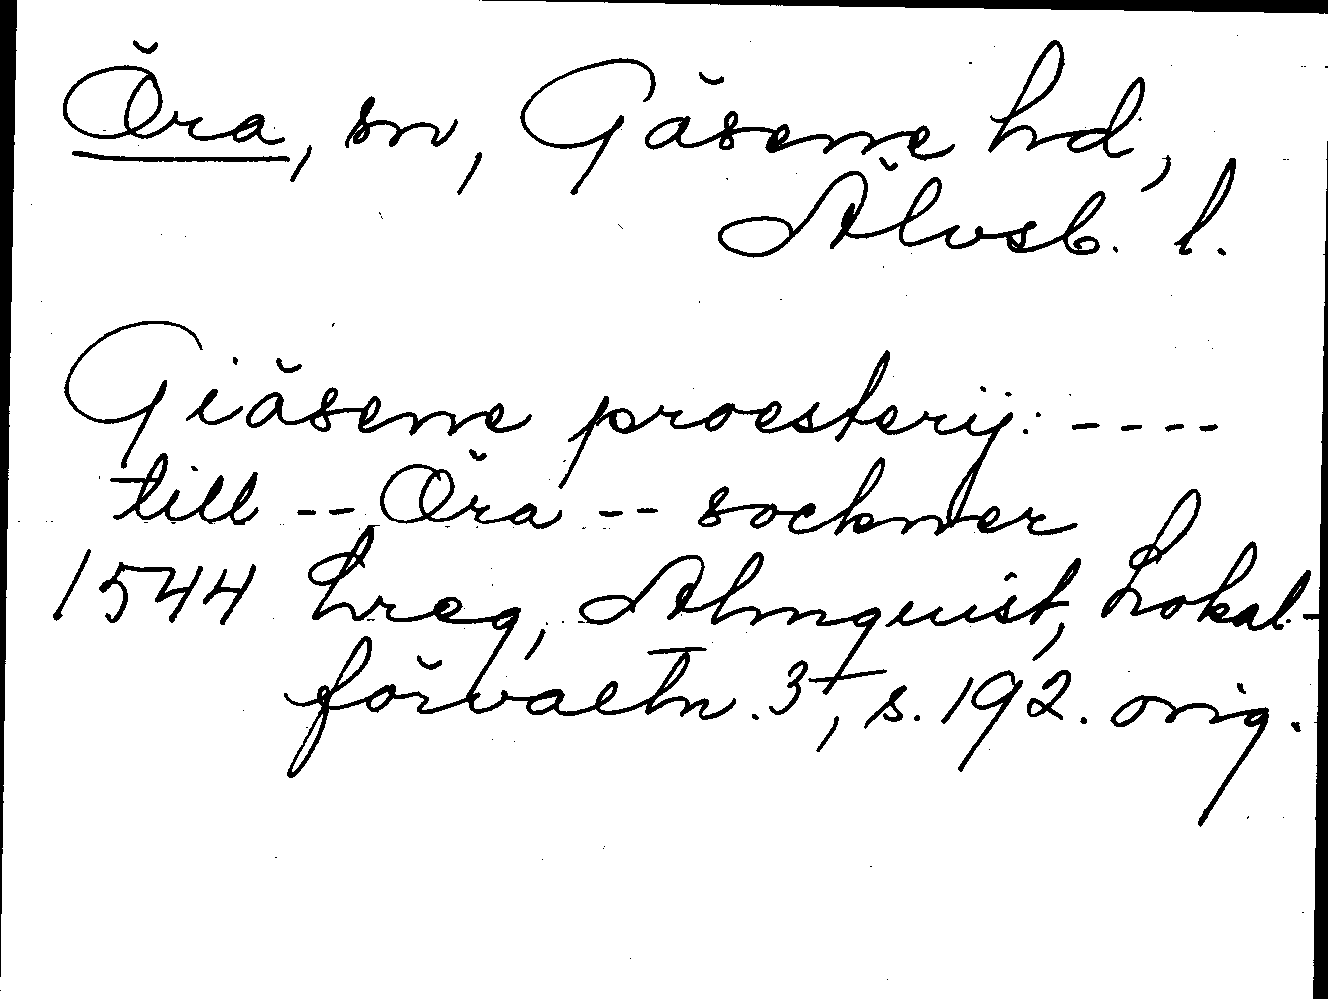 Öra, sn, Gäsene hd,
Älvsb. l.
Giäsene proesterij: ----
till -- Öra -- sockner
1544 Lreg, Almquist, Lokal-
förvaltn. 3, s. 192. orig.